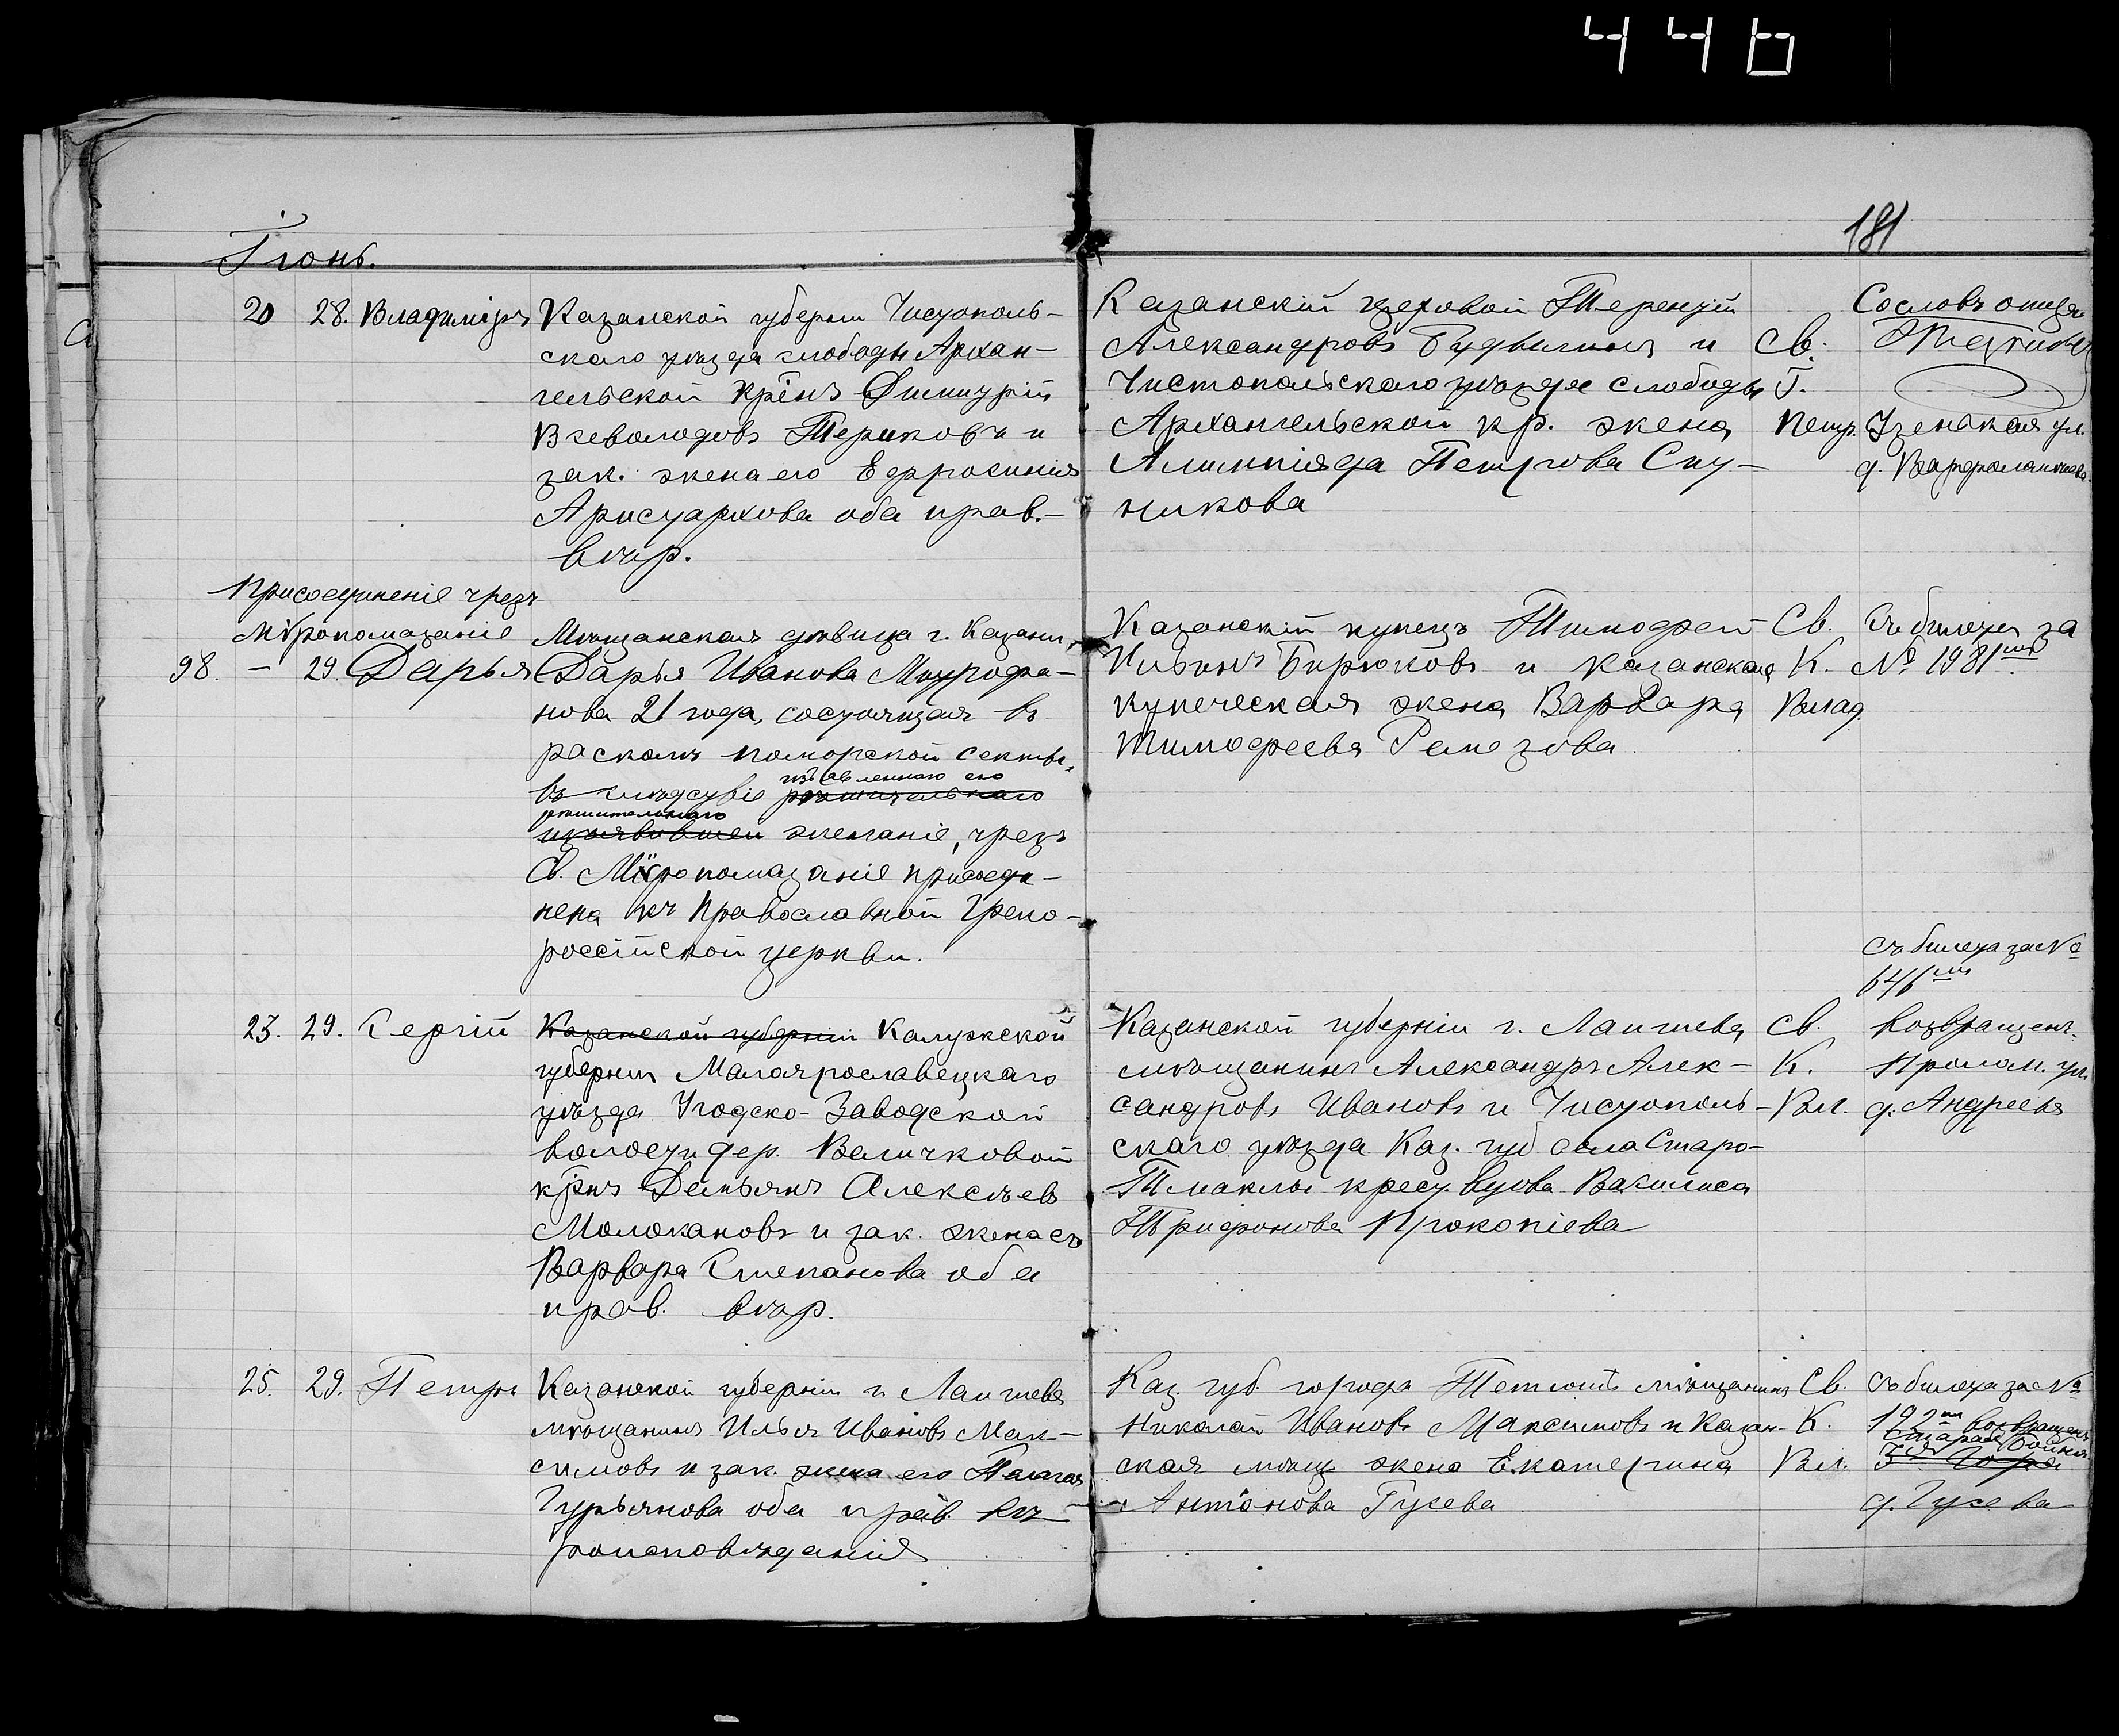 446
181
Іюнь.
20 28. Владиміръ Казанской губерніи Чистополь-
скаго уѣзда слободы Архан-
гельской кр̃нъ Димитрій
Всеволодовъ Териковъ и
зак. жена его Ефросинія
Аристархова оба прав.-
вѣр.
Казанскій цеховой Терентій
Александровъ и
Чистопольскаго уѣзда слободы
Архангельской кр. жена
Алимпіяда Петрова Спу-
никова
Св.
Г.
Петр.
Сослов. отца
Узенькая ул.
д. Варфоломеева
Присоединеніе чрезъ
Мѵропомазаніе
98. - 29. Дарья
Мѣщанская дѣвица г. Казани,
Дарья Иванова Митрофа-
нова 21 года, состоящая въ
расколѣ поморской секты,
изъявленнаго ею
въ слѣдствіе рѣшительнаго
рѣшительнаго
изъявившей желаніе, чрезъ
Св. Мѵропомазаніе присоеди-
нена къ Православной Греко-
россійской церкви.
Казанскій купецъ Тимофей
Бирюковъ и Казанская
купеческая жена Варвара
Тимофеева Ремезова
Св.
К.
Влад
Съ билета за
№ 1981мъ.
23. 29. Сергій Казанской губерніи Калужской
губерніи Малоярославецкаго
уѣзда Угодско-Заводской
волости дер. Величковой
кр̃нъ Демьянъ Алексѣевъ
Молокановъ и зак. жена его
Варвара Степанова оба
прав. вѣр.
Казанской губерніи г. Лаишева
мѣщанинъ Александръ Алек-
сандровъ Ивановъ и Чистополь-
скаго уѣзда Каз. губ села Старо-
Тмаклы крест. вдова Вассилиса
Трифонова Прокопіева
Св.
К.
Вл.
Съ билета за №
646мъ
возвращенъ.
Пролом. ул.
д. Андреева
25. 29. Петръ Казанской губерніи г. Лаишева
мѣщанинъ Илья Ивановъ Мак-
симовъ и зак. жена его Пелагея
Гурьянова оба прав. вѣ-
роисповѣданія
Каз. губ. города Тетюшъ мѣщанинъ
Николай Ивановъ Максимовъ и Казан-
ская мѣщ. жена Екатерина
Антонова Гусева
Св.
К.
Вл.
Съ билета за №
192мъ возвращенъ
Старая
3я Гора
д. Гусева